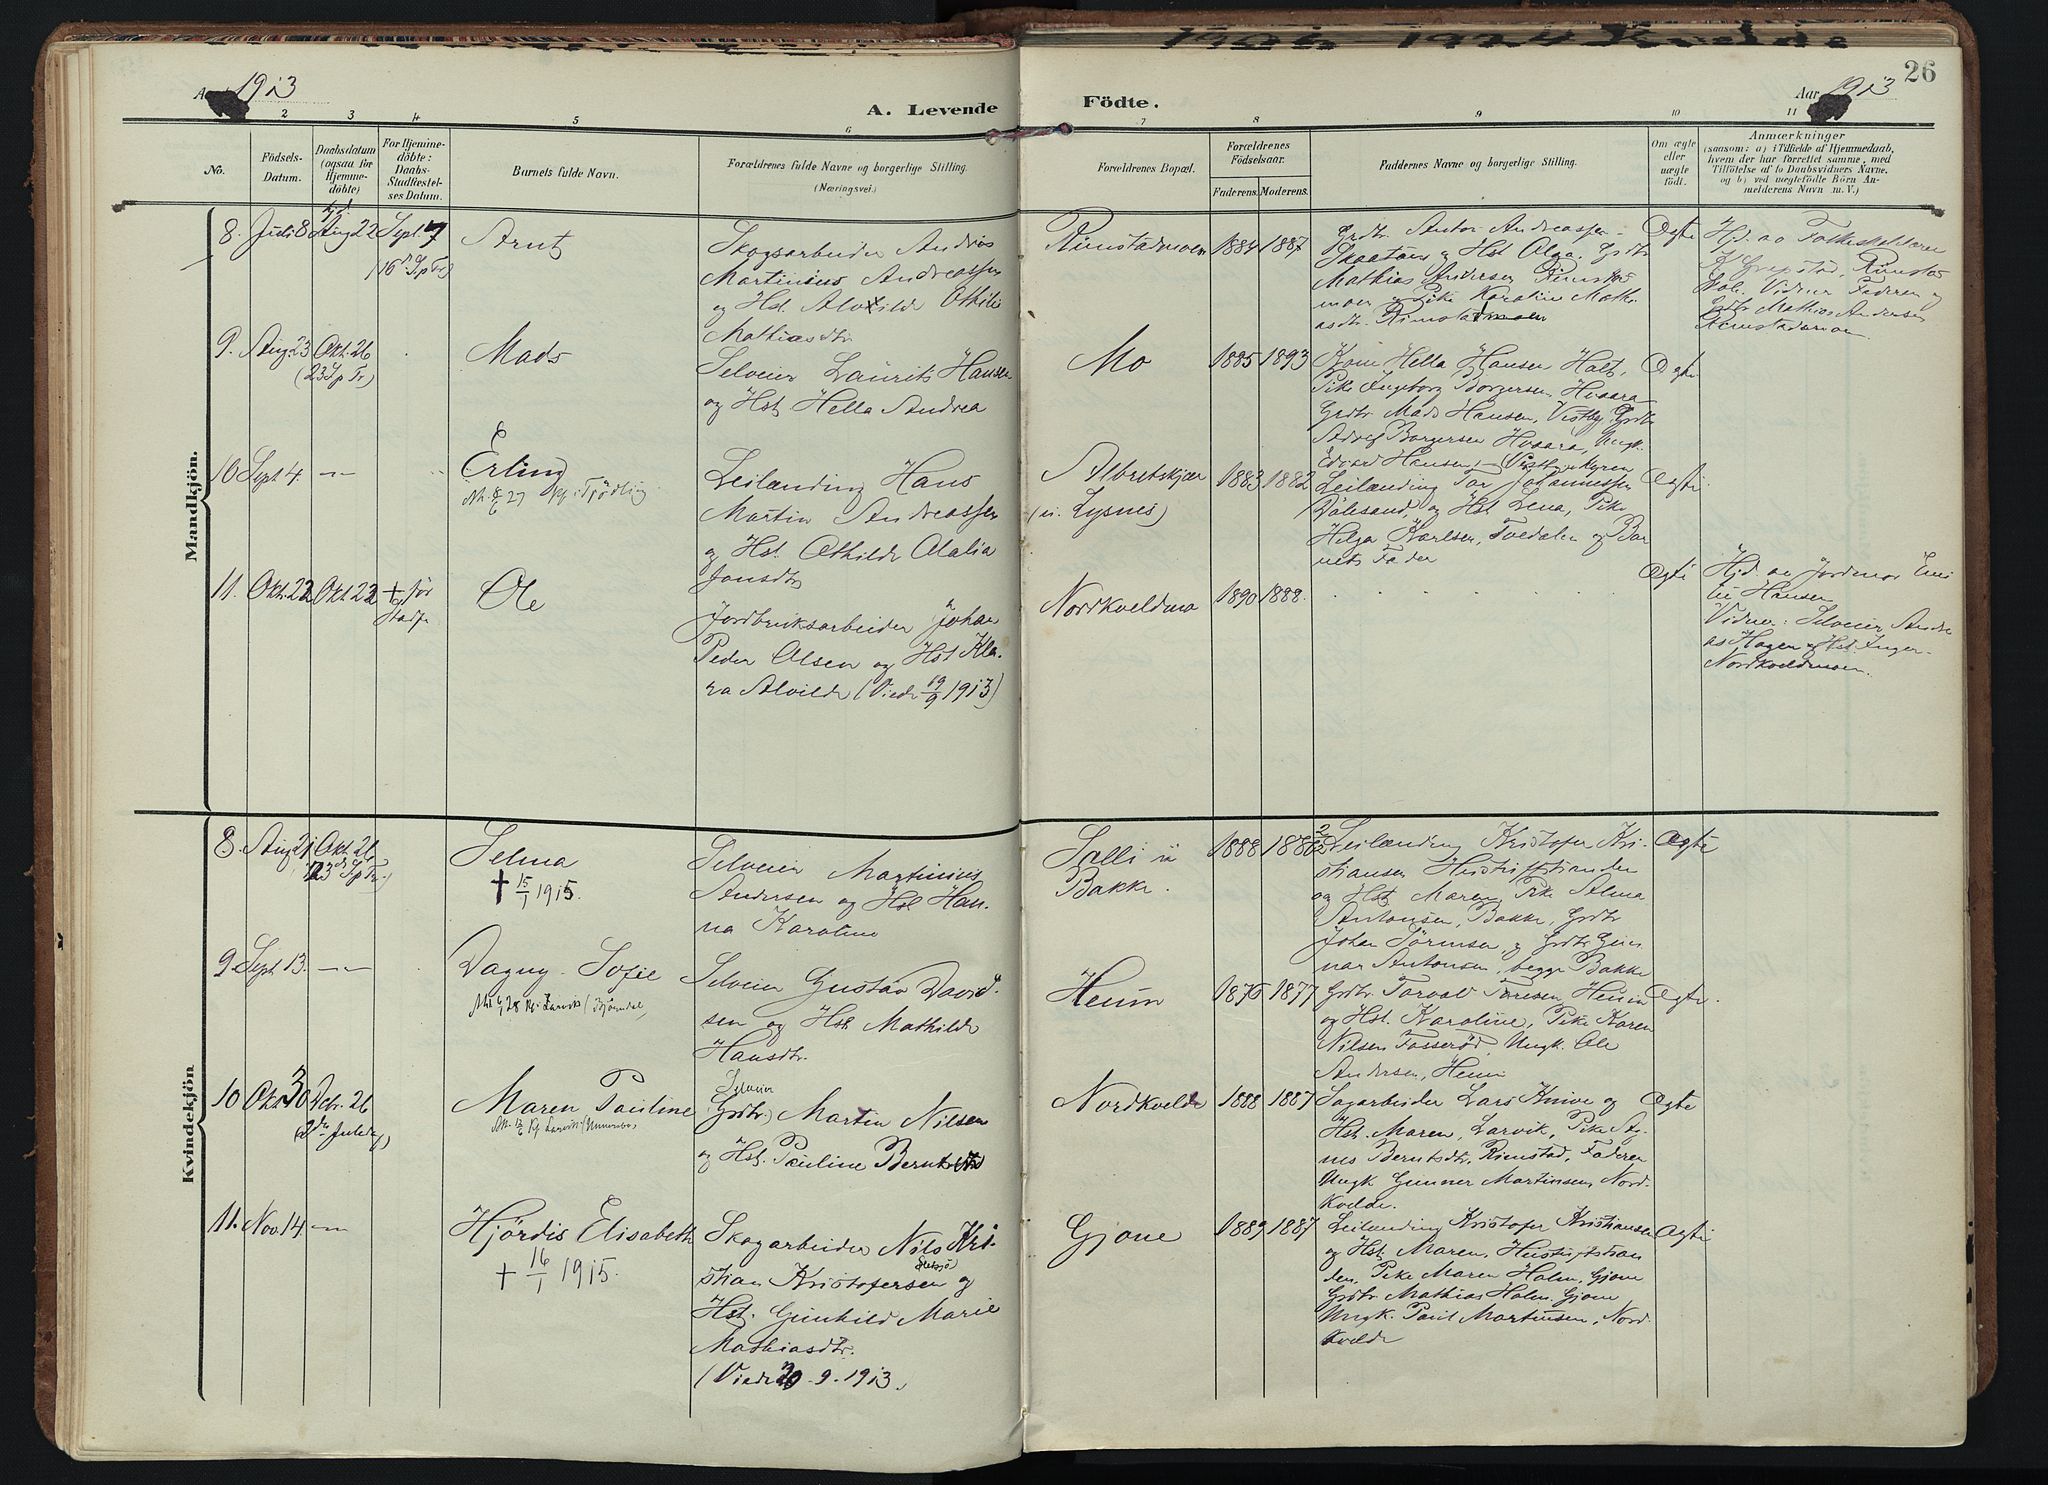 1906 1924 Kvelde
Aar 1913
A. Levende Födte.
Aar 1913
26
2 3 4 5 6 7 8 9 10 11
No.
Födsels-Datum.
Daabsdatum (ogsaa for Hjemme-döbte)
For Hjemme-döbte: Daabs-Stadfæstel-ses Datum.
Barnets fulde Navn.
Forældrenes fulde Navne og borgerlige Stilling. (Næringsvei.)
Forældrenes Bopæl.
Forældrenes Födselsaar.
Faderens. Moderens.
Faddernes Navne og borgerlige Stilling.
Om ægte eller uægte födt.
Anmærkninger
(saasom: a) i Tilfælde af Hjemmedaab, hvem der har forrettet samme, med Tilföielse af to Daabsvidners Navne, og b) ved uægtefödte Börn Anmelderens Navn m. V.)
Mandkjön.
8. Juli 8 Aug 22 Sept. 7
Arnt
Skogsarbeider Andreas
Martinius Andreassen
og Hst. Alvilde Othilie
Mathiasdtr.
Rimstadmoen 1884 1887
Grdbr. Anton Andreassen
Skaatan og Hst Olga, Grdbr
Mathias Andersen Rimstad-
moen, Pike Karoline Mathi-
asdtr. Rimstadmoen
Ægte
Hjd. av Folkeskolelærer
Vidner Faderen og
Grdbr Mathias Andersen
Rimstadmoen
9. Aug. 23 Okt. 26
(23 S p Tr.)
Mads
Selveier Laurits Hansen
og Hst. Hella Andrea
Mo 1885 1893
Kone Hella Hansen Holt,
Pike Ingeborg Borgersen, Hvaara
Grdbr Mads Hansen, Vestby, Grdbr
Adolf Borgersen Hvaara, Ungk.
Edvard Hansen, Vestby
Ægte
10 Sept 4. —„—
Erling
Leilænding Hans
Martin Andreassen
og Hst. Othilde Amalia
Jonsdtr
Albretskjær
(u. Lysnes)
1883 1882
Leilænding Tor Johannessen
Dalesand, og Hst Lena, Pike
Helga Karlsen, Tvedalen og Bar-
nets Fader
Ægte
11. Okt. 22 Okt 22 + før stadf.
Ole
Jordbruksarbeider Johan
Peder Olsen og Hst Kla-
ra Alvilde (Viede 19/9 1913)
Nordkveldmo 1890 1888.
Ægte
Hjd. av Jordmor Emi-
lie Hansen
Vidner: Selveier Andre-
as Hagen og Hst. Inger
Nordkveldmoen.
Kvindekjön
8. Aug 21 Okt. 26
(23 S p Tr.)
Selma
† 15/1 1915.
Selveier Martinius
Andersen og Hst Han-
na Karoline
Salli u
Bakke.
1888
Leilænding Kristofer Kri-
stiansen Heistiftstranden
og Hst Maren, Pike Alma
Antonsen, Bakke, Grdbr
Johan Sørensen, og Grdbr Gun-
nar Antonsen, begge Bakke
Ægte
9. Sept. 13. —„—
Dagny Sofie
Selveier Gustav David-
sen og Hst. Mathilde
Hansdtr.
Heum 1876 1877
Grdbr. Torvald Toresen, Heum
og Hst. Karoline, Pike Karen
Nilsen Fosserød, Ungk. Ole
Andersen, Heum
Ægte.
10 Okt. 30 Debr. 26
(2den Juledag)
Maren Pauline
Selveier
(Grdbr.) Martin Nilsen
og Hst. Pauline Berntsdtr
Nordkvelde 1888 1887
Sagarbeider Lars Knive og
Hst. Maren, Larvik, Pike Ag-
nes Berntsdtr, Rimstad, Faderen
Ungk Gunner Martinsen, Nord-
kvelde.
Ægte
11. Nov. 14. —„—
Hjørdis Elisabeth
† 16/1 1915.
Skogarbeider Nils Kri-
stian Kristofersen og
Hst. Gunhild Marie
Mathiasdtr.
(Viede 20.9.1913.)
Gjone 1889 1887
Leilænding Kristofer Kristiansen
og Hst. Maren, Heistiftstran-
den, Pike Maren Holm, Gjone
Grdbr Mathias Holm, Gjone
Ungk. Paul Martinsen, Nord-
kvelde
Ægte